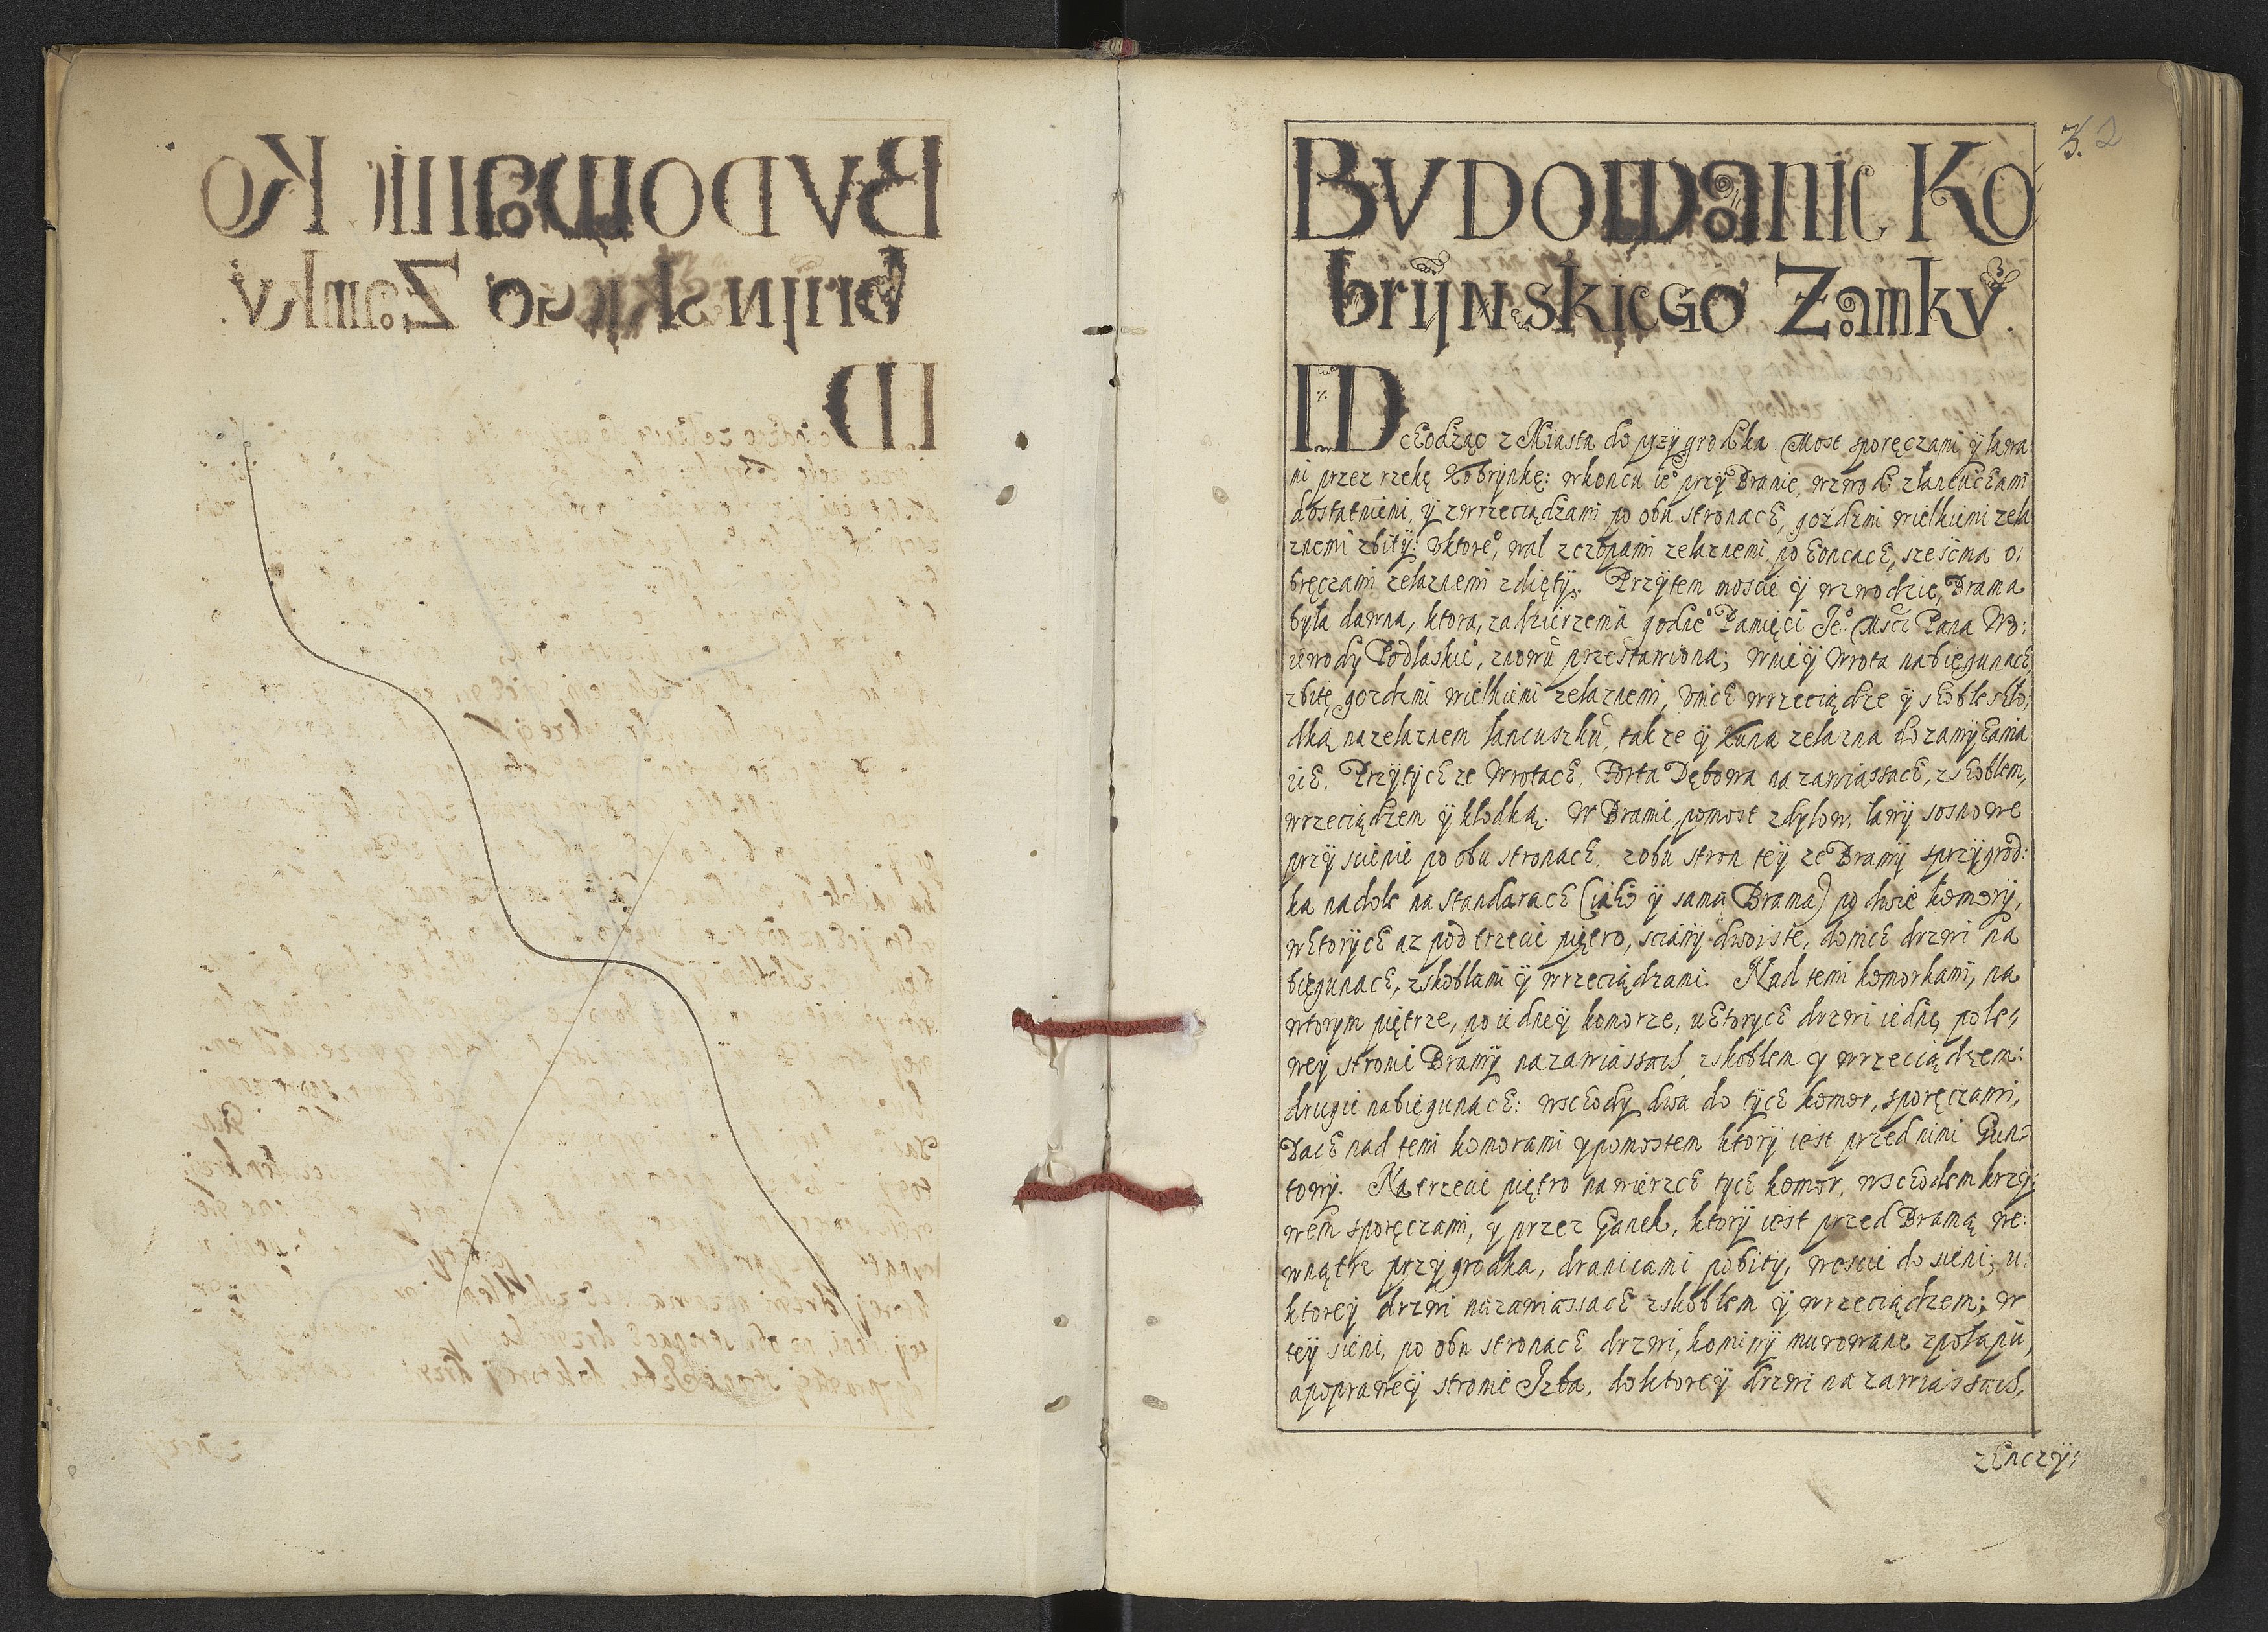 3. 2
BVDOWANIE KO
brijnskiego Zamkv.
Wchodząc z Miasta do przÿgrodka. Most sporęczami ÿ ława
mi przez rzekę Kobrÿnkę: wkoncu ieº przÿ Bramie, wzwod złancuchami
dostatniemi, ÿ zwrzeciądzami po obu stronach, gozdzmi wielkiemi zela
znemi zbitÿ: Vktoreº, wał zczopami zelaznemi, po koncach, szescma o:
bręczami zelaznemi zdiętÿ. Przÿtem moscie ÿ wzwodzie, Brama
była dawna, ktora, zadzierzenia godneº Pamięci Jeº Mści Pana Wo:
iewody Podlaskieº, znowu przestawiona; wnieÿ Wrota nabiegunach
zbitę gozdzmi wielkiemi zelaznemi, Vnich wrzeciądze ÿ skoble skło:
dką nazelaznem łancuszku, takze ÿ Kuna zelazna do zamÿkania
ich. Przÿtÿch ze Wrotach, Forta Dębowa na zawiassach, zskoblem,
wrzeciądzem ÿ kłodką. W Bramie, pomost zdylow, ławÿ sosnowe
przÿ scienie po obu stronach. zobu stron teÿ ze Bramÿ sprzÿgrod:
ka nadole na standarach (iako ÿ sama Brama) po dwie komorÿ,
wktorÿch az pod trzecie piętro, scianÿ dwoiste, donich drzwi na
biegunach, zskoblami ÿ wrzeciądzami. Nad temi komorkami, na
wtorym piętrze, po iedneÿ komorze, uktorych drzwi iedne, pole:
wey stronie Bramÿ nazawiassach, zskoblem y wrzeciądzem:
drugie nabiegunach: wschody dwa do tych komor, sporęczami,
Dach nad temi komorami ypomostem ktorÿ iest przed nimi Gun:
towÿ. Na trzecie piętro nawierzch tych komor, wschodem krzÿ:
wem sporęczami, y przez Ganek, ktorÿ iest przed Bramą we:
wnątrz przÿgrodka, dranicami pobitÿ, wescie do sieni; u:
ktoreÿ drzwi nazawiassach zskoblem ÿ wrzeciądzem; w
teÿ sieni, po obu stronach drzwi, kominÿ murowane zpołapu,
apopraweÿ stronie Jzba, doktoreÿ drzwi na zawiassach,